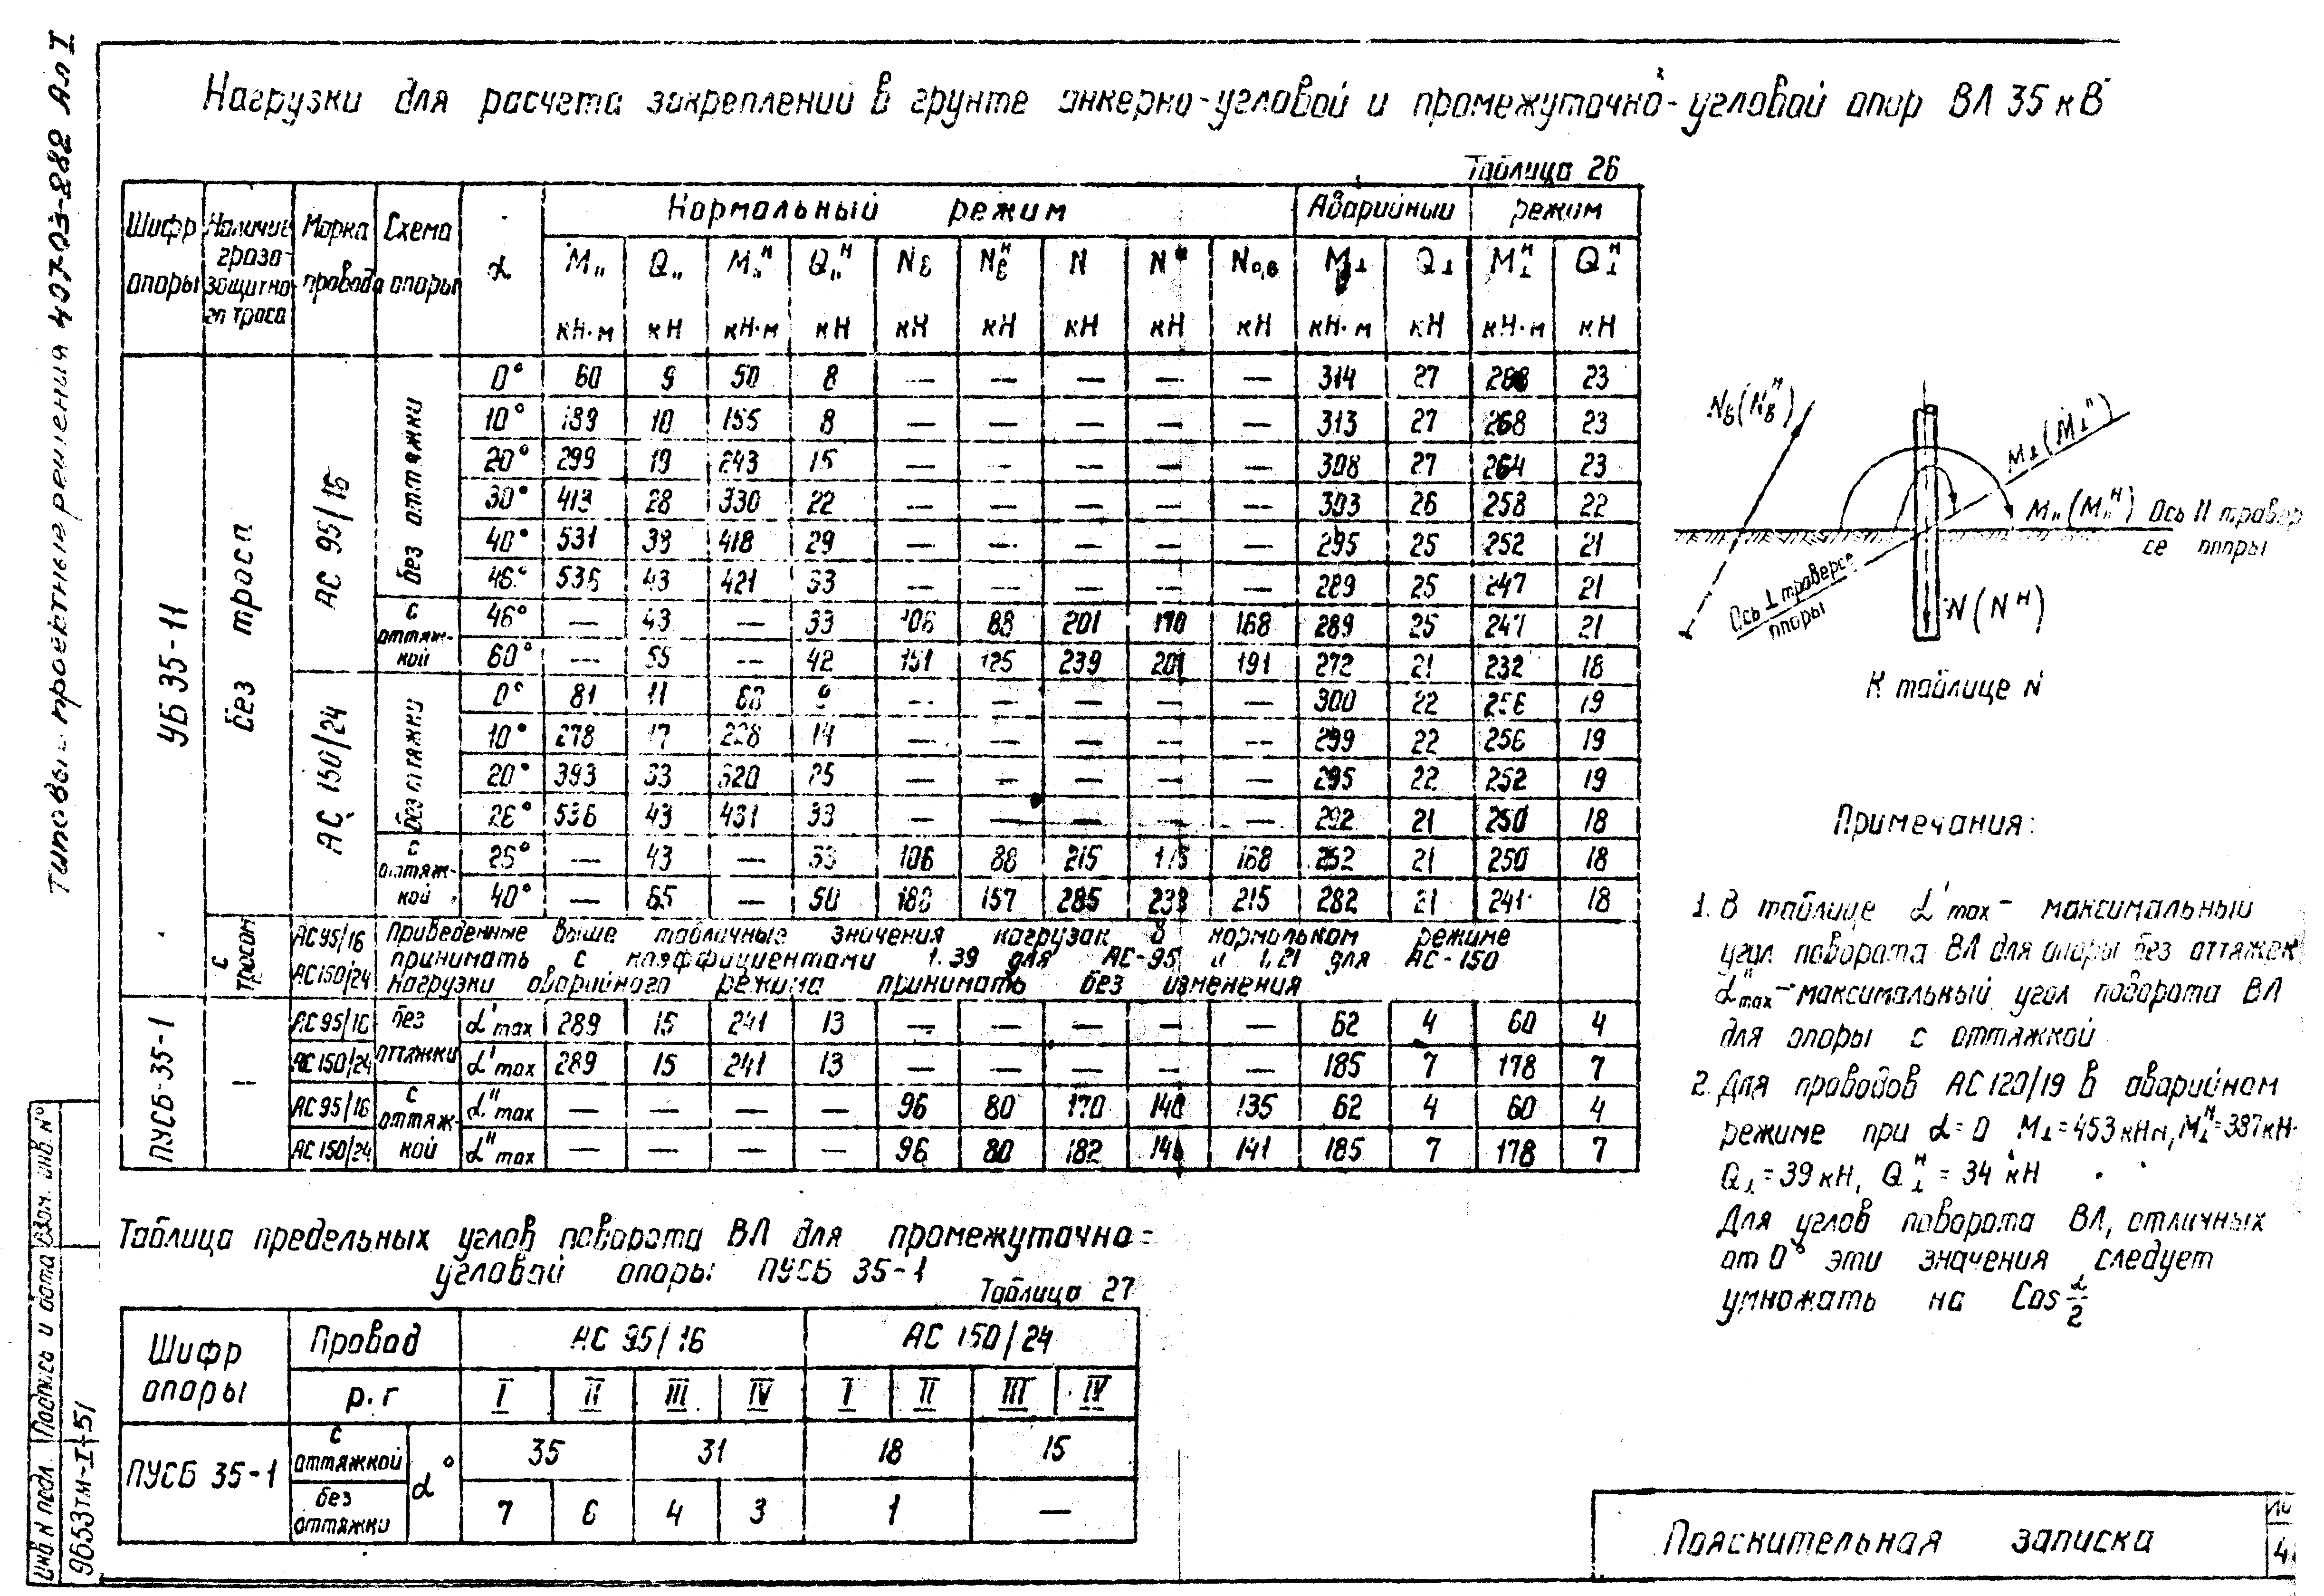 Типовые проектные решения 407-03-282 Ал I
Нагрузки для расчета закреплений в грунте анкерно-угловой и промежуточно-угловой опор ВЛ 35 кВ
Таблица 26
Шифр опоры | Наличие грозозащитного троса | Марка провода | Схема опоры | α | Нормальный режим | Аварийный режим
M" | Q" | M"ᴴ | Q"ᴴ | Nв | Nвᴴ | N | Nᴴ | N0,в | M⊥ | Q⊥ | M⊥ᴴ | Q⊥ᴴ
кН·м | кН | кН·м | кН | кН | кН | кН | кН | кН | кН·м | кН | кН·м | кН
УБ 35-11
без троса
АС 95/16
без оттяжки
0° | 60 | 9 | 50 | 8 | — | — | — | — | — | 314 | 27 | 268 | 23
10° | 189 | 10 | 155 | 8 | — | — | — | — | — | 313 | 27 | 268 | 23
20° | 299 | 19 | 243 | 15 | — | — | — | — | — | 308 | 27 | 264 | 23
30° | 413 | 28 | 330 | 22 | — | — | — | — | — | 303 | 26 | 258 | 22
40° | 531 | 38 | 418 | 29 | — | — | — | — | — | 295 | 25 | 252 | 21
46° | 536 | 43 | 421 | 33 | — | — | — | — | — | 289 | 25 | 247 | 21
с оттяжкой
46° | — | 43 | — | 33 | 106 | 88 | 201 | 170 | 168 | 289 | 25 | 247 | 21
60° | — | 55 | — | 42 | 151 | 125 | 239 | 201 | 191 | 272 | 21 | 232 | 18
АС 150/24
без оттяжки
0° | 81 | 11 | 68 | 9 | — | — | — | — | — | 300 | 22 | 256 | 19
10° | 278 | 17 | 228 | 14 | — | — | — | — | — | 299 | 22 | 256 | 19
20° | 393 | 33 | 320 | 25 | — | — | — | — | — | 295 | 22 | 252 | 19
26° | 536 | 43 | 431 | 33 | — | — | — | — | — | 292 | 21 | 250 | 18
с оттяжкой
25° | — | 43 | — | 33 | 106 | 88 | 215 | 178 | 168 | 252 | 21 | 250 | 18
40° | — | 65 | — | 50 | 188 | 157 | 285 | 238 | 215 | 282 | 21 | 241 | 18
с тросом
АС 95/16
АС 150/24
Приведенные выше табличные значения нагрузок в нормальном режиме
принимать с коэффициентами 1.39 для АС-95 и 1,21 для АС-150
Нагрузки аварийного режима принимать без изменения
ПУСБ-35-1
—
АС 95/16 | без оттяжки | α'max | 289 | 15 | 241 | 13 | — | — | — | — | — | 62 | 4 | 60 | 4
АС 150/24 | α'max | 289 | 15 | 241 | 13 | — | — | — | — | — | 185 | 7 | 178 | 7
АС 95/16 | с оттяжкой | α"max | — | — | — | — | 96 | 80 | 170 | 140 | 135 | 62 | 4 | 60 | 4
АС 150/24 | α"max | — | — | — | — | 96 | 80 | 182 | 146 | 141 | 185 | 7 | 178 | 7
Nв(Nвᴴ)
M⊥(M⊥ᴴ)
M"(M"ᴴ) Ось II травер
се опоры
Ось ⊥ траверсе
опоры
N(Nᴴ)
К таблице N
Примечания:
1. В таблице α'max — максимальный
угол поворота ВЛ для опоры без оттяжек
α"max — максимальный угол поворота ВЛ
для опоры с оттяжкой
2. Для проводов АС 120/19 в аварийном
режиме при α=0 M⊥=453 кНм, M⊥ᴴ=387кН·
Q⊥=39 кН, Q⊥ᴴ=34 кН
Для углов поворота ВЛ, отличных
от 0° эти значения следует
умножать на Cos α/2
Таблица предельных углов поворота ВЛ для промежуточно=
угловой опоры ПУСБ 35-1
Таблица 27
Шифр опоры | Провод | АС 95/16 | АС 150/24
р.г | I | II | III | IV | I | II | III | IV
ПУСБ 35-1 | с оттяжкой | α° | 35 | 31 | 18 | 15
без оттяжки | 7 | 6 | 4 | 3 | 1 | —
Пояснительная записка
Инв. N подл. Подпись и дата Взам. инв. N°
9653тм-I-51